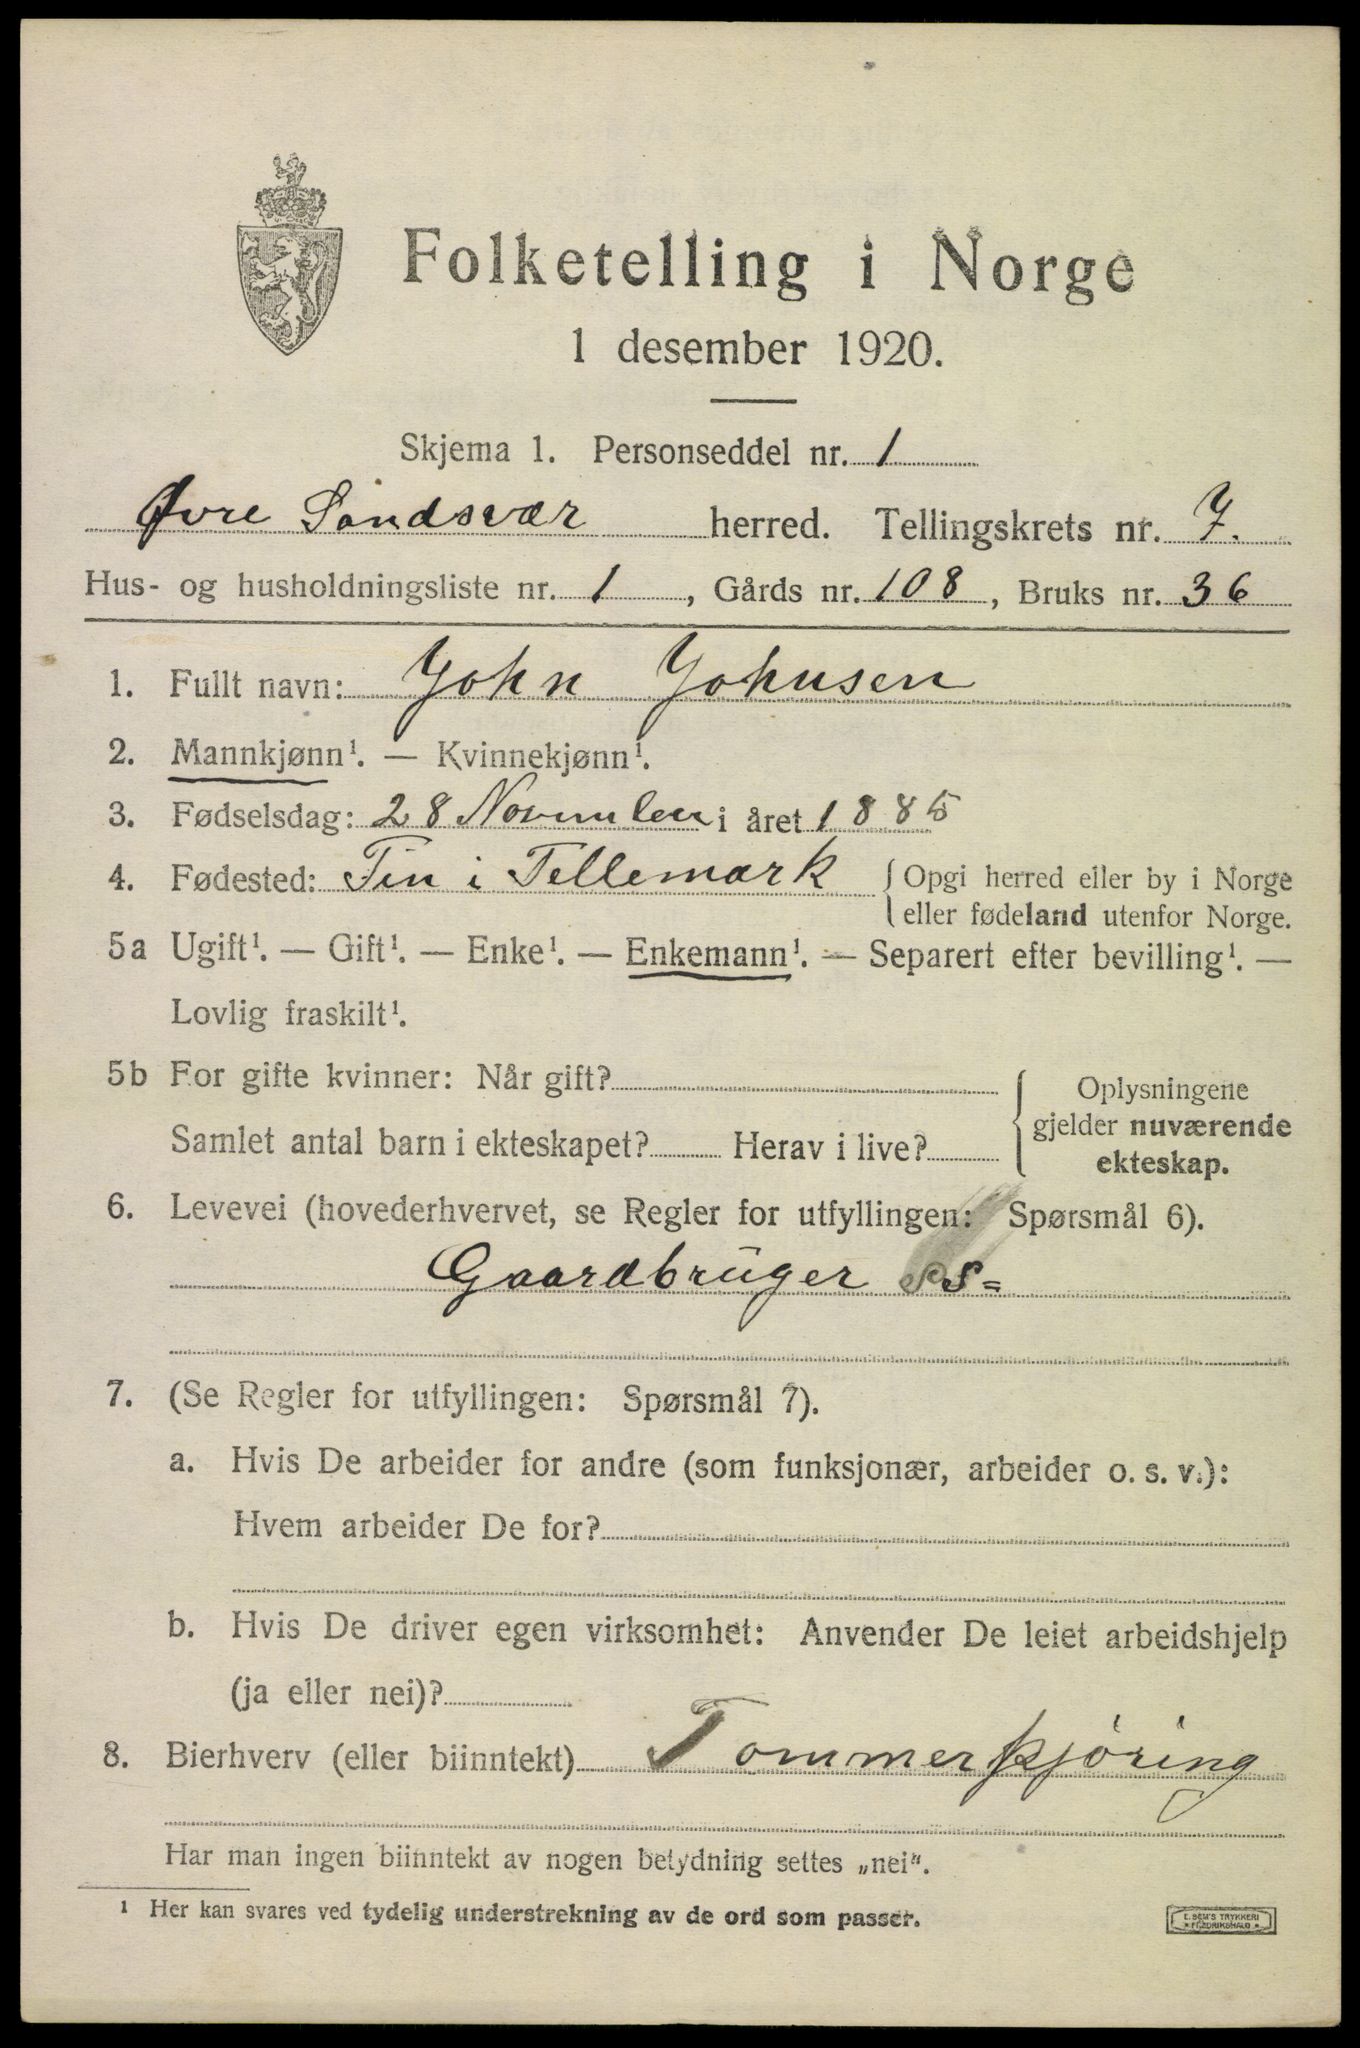 Folketelling i Norge
1 desember 1920.
Skjema 1. Personseddel nr. 1
Øvre Sandsvær herred. Tellingskrets nr. 7.
Hus- og husholdningsliste nr. 1, Gårds nr. 108, Bruks nr. 36
1. Fullt navn: John Johnsen
2. Mannkjønn¹. — Kvinnekjønn¹.
3. Fødselsdag: 28 November i året 1885
4. Fødested: Tin i Tellemark { Opgi herred eller by i Norge
eller fødeland utenfor Norge.
5a Ugift¹. — Gift¹. — Enke¹. — Enkemann¹. — Separert efter bevilling¹. —
Lovlig fraskilt¹.
5b For gifte kvinner: Når gift?
Samlet antal barn i ekteskapet? Herav i live?
Oplysningene
gjelder nuværende
ekteskap.
6. Levevei (hovederhvervet, se Regler for utfyllingen: Spørsmål 6).
Gaardbrüger SS=
7. (Se Regler for utfyllingen: Spørsmål 7).
a. Hvis De arbeider for andre (som funksjonær, arbeider o. s. v.):
Hvem arbeider De for?
b. Hvis De driver egen virksomhet: Anvender De leiet arbeidshjelp
(ja eller nei)?
8. Bierhverv (eller biinntekt) Tommerkjöring
Har man ingen biinntekt av nogen betydning settes „nei".
¹ Her kan svares ved tydelig understrekning av de ord som passer.
E. SEM'S TRYKKERI
FREDRIKSHALD